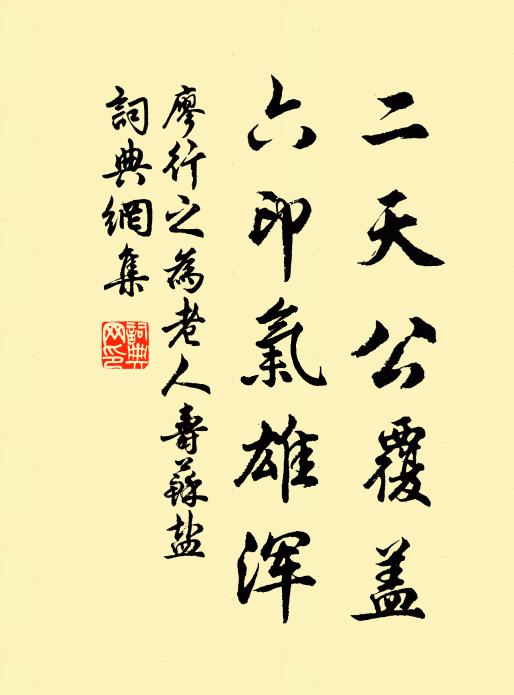 二天公覆盖
六印氣雄浑
廖行之為老人壽蘇盐
詞典網集
詞典網印